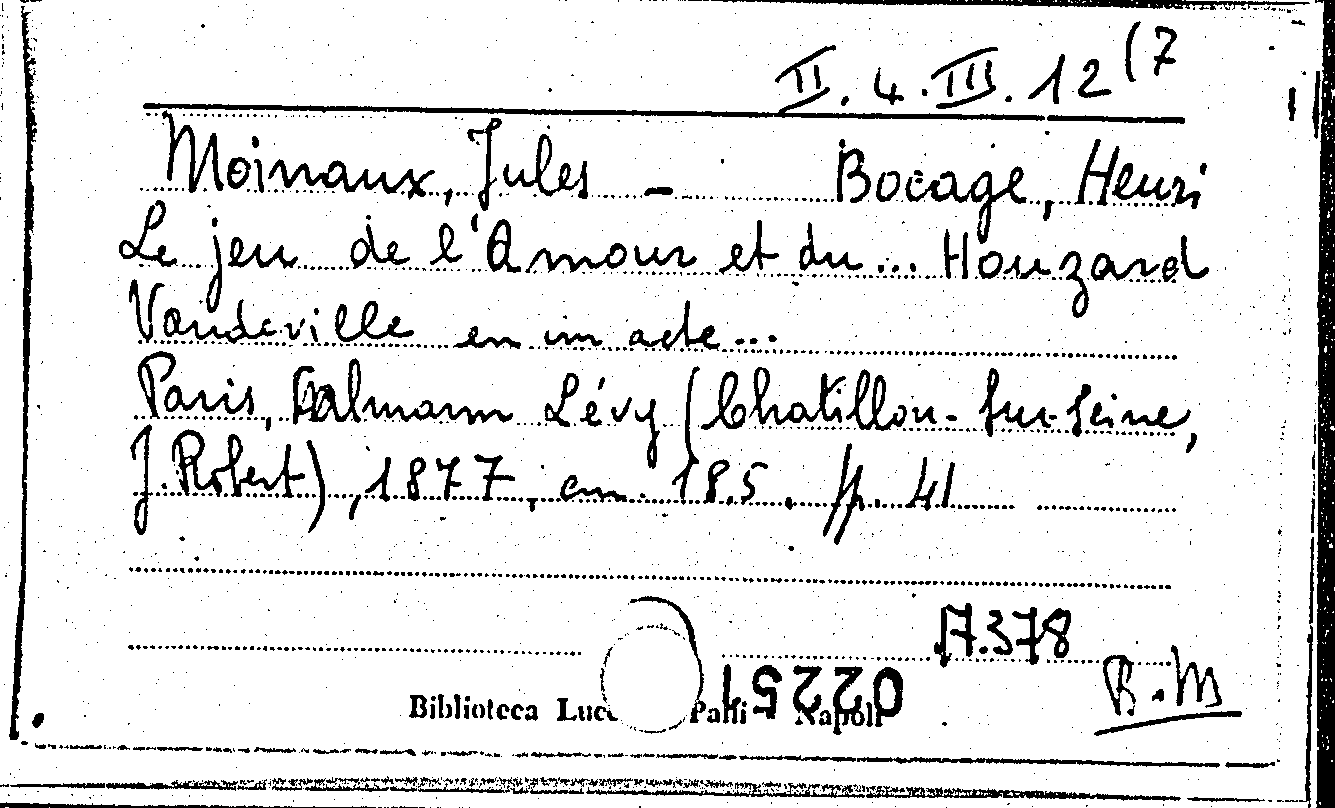 II. 4. III. 12 (7
Moinaux, Jules - Bocage, Henri
Le jeu de l'Amour et du... Houzard
Vaudeville en un acte...
Paris, Calmann Lévy (Chatillon-sur-Seine,
J. Robert), 1877, cm. 18.5. pp. 41
A.378
02251
B.M
Biblioteca Lucc Palli - Napoli